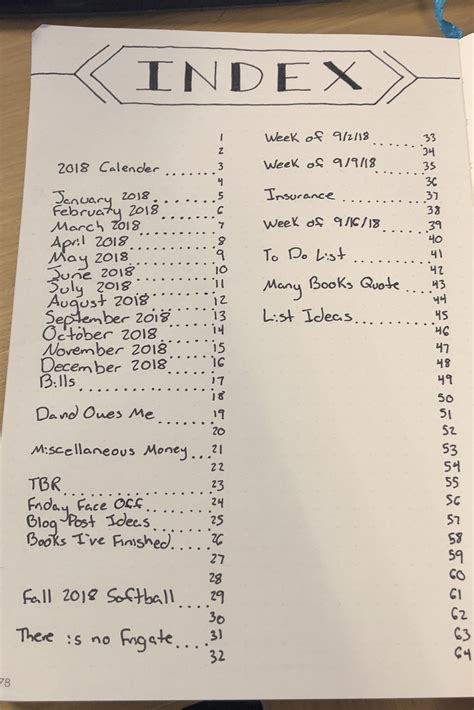 INDEX
1
2
2018 Calender .... 3
4
January 2018....... 5
February 2018...... 6
March 2018........ 7
April 2018......... 8
May 2018.......... 9
June 2018......... 10
July 2018.......... 11
August 2018....... 12
September 2018.... 13
October 2018...... 14
November 2018..... 15
December 2018..... 16
Bills............... 17
18
David Owes Me...... 19
20
Miscellaneous Money... 21
22
TBR............... 23
Friday Face Off.... 24
Blog Post Ideas..... 25
Books I've Finished.... 26
27
28
Fall 2018 Softball.... 29
30
There is no Frigate.... 31
32
Week of 9/2/18..... 33
34
Week of 9/9/18..... 35
36
Insurance......... 37
38
Week of 9/16/18.... 39
40
To Do List......... 41
42
Many Books Quote... 43
44
List Ideas......... 45
46
47
48
49
50
51
52
53
54
55
56
57
58
59
60
61
62
63
64
78